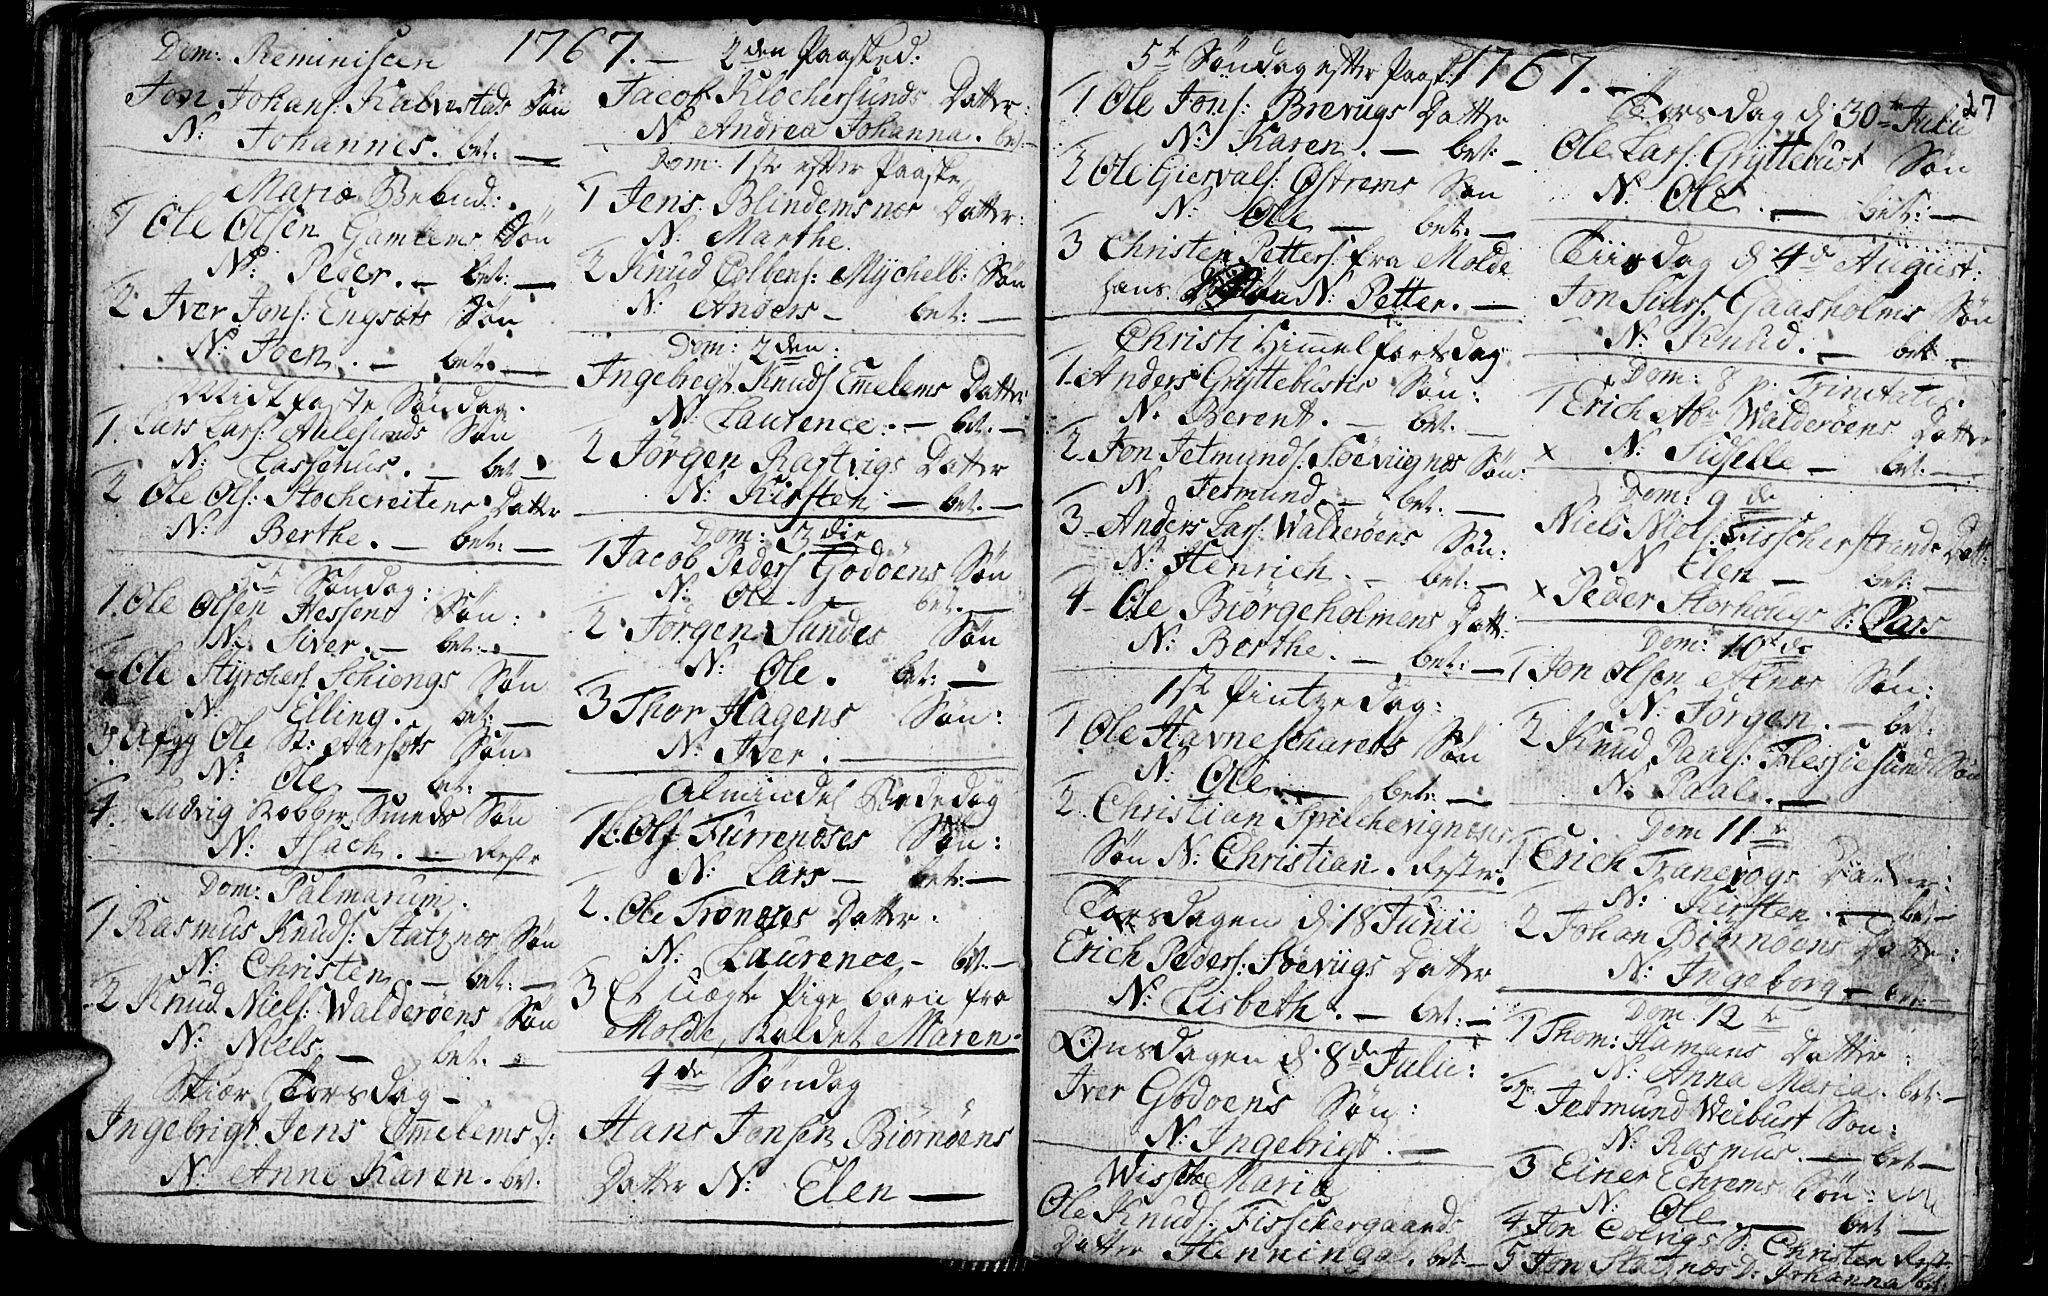 1767.
Dom: Reminiscen
Jon Johans: Kalvestads Søn
N: Johannes. bet: —
Mariæ Bebud:
1 Ole Olsen Gamlems Søn
N: Peder. — bet: —
2 Iver Jons: Engsets Søn
N: Joen. — bet: —
Midfaste Søndag.
1. Lars Lars: Aalesunds Søn
N: — bet:
2 Ole Ols: Stochreitens Datter
N: Berthe. — bet: —
5te Søndag:
1. Ole Olsen Hessens Søn:
N: Siver. — bet: —
2 Ole Styrchers: Schiongs Søn
N: Elling. bet: —
3. Afgg Ole St: Aarsets Søn
N: Ole — bet: —
4. Ludvig Robber Sunds Søn
N: Isach. — rester
Dom: Palmarum.
1 Rasmus Knuds: Statznes Søn
N: Christen. — bet: —
2 Knud Niels: Walderøens Søn
N: Niels — bet: —
Skiær Torsdag —
Ingebrigt Jens Emelems D:
N: Anne Karen. bet.
2den Paasked:
Jacob Klochersunds Datter:
N Andrea Johanna. bet: —
Dom: 1ste efter Paaske
1 Jens Blindemsnes Datter:
N: Marthe.
2 Knud Colbens: Mychelb: Søn
N: Anders — bet: —
Dom: 2den:
Ingebregt Knuds Emelems Datter
N: Laurence: — bet. —
2 Jørgen Rastvigs Datter
N: Kirsten — bet. —
Dom: 3die
1 Jacob Peders Godøens Søn
N: Ole. — bet. —
2 Jørgen Sundes Søn
N: Ole. bet: —
3 Thor Hagens Søn:
N: Iver. —
Almindel Bededag
1. Ols Furrenøses Søn:
N: Lars — bet: —
2. Ole Tronøses Datter.
N: Laurence — bet. —
3 Et uægte Pige barn fra
Molde, kaldet Maren.
4de Søndag
Hans Jonsen Biørnøens
Datter N: Elen —
1767. —
27
5te Søndag efter Paask:
1 Ole Jons: Brevugs Datter
N: Karen. — bet: —
2 Ole Giervals: Østrems Søn
N: Ole — bet: —
3 Christen Petters: fra Molde
hans Søn N: Petter. —
Christi Himmelfartsdag
1. Anders Gryttebustes Søn:
N: Berent. — bet. —
2. Jon Jetmunds: Søevugnes Søn:
N: Jetmund. — bet: —
3. Anders Lars: Walderøens Søn:
N: Henrich. — bet: —
4 — Ole Biørgeholmens Datt:
N: Berthe. — bet: —
1ste Pintzedag:
1 Ole Havnescharets Søn
N: Ole. — bet: —
2. Christian Spilchevignes
Søn N: Christian. Rester.
Torsdagen d: 18 Junii
Erich Peders: Søevugs Datter
N: Lisbeth. — bet: —
Onsdagen d: 8de Julii:
Iver Godøens Søn:
N: Ingebrigt. —
Wissche Mariæ
Ole Knuds: Fisschergaards
Datter Henninga. bet: —
Torsdag d: 30te Julii
Ole Lars: Gryttebust Søn
N: Ole. — bet: —
Tiirsdag d: 4de August:
Jon Lars: Gaasholms Søn
N: Knud. — bet —
Dom: 8 p: Trinitatis.
1 Erich Abr Walderøens Datter
x N: Sidselle — bet: —
Dom: 9de
Niels Niels: Fisscherstrands Datt:
N Elen — bet: —
x Peder Storhougs S: Lars
Dom: 10de
1 Jon Olsen Alnes Søn:
N: Jørgen. — bet:
2 Knud Paals: Flessiesund Søn
N: Paal. —
Dom 11te
1 Erich Tranevogs Datter:
N: Kirsten. — bet —
2 Johan Biørnøens Datter:
N: Ingeborg — bet: —
Dom. 12te
1 Thom: Hamans Datter:
N: Anna Maria. bet: —
2 Jetmund Weibust Søn:
N: Rasmus. — bet —
3 Einer Echrems Søn:
N: Ole. — bet —
4 Jon Colvigs S: Christen Rest:
5 Jon Statznes D: Johanna bet: